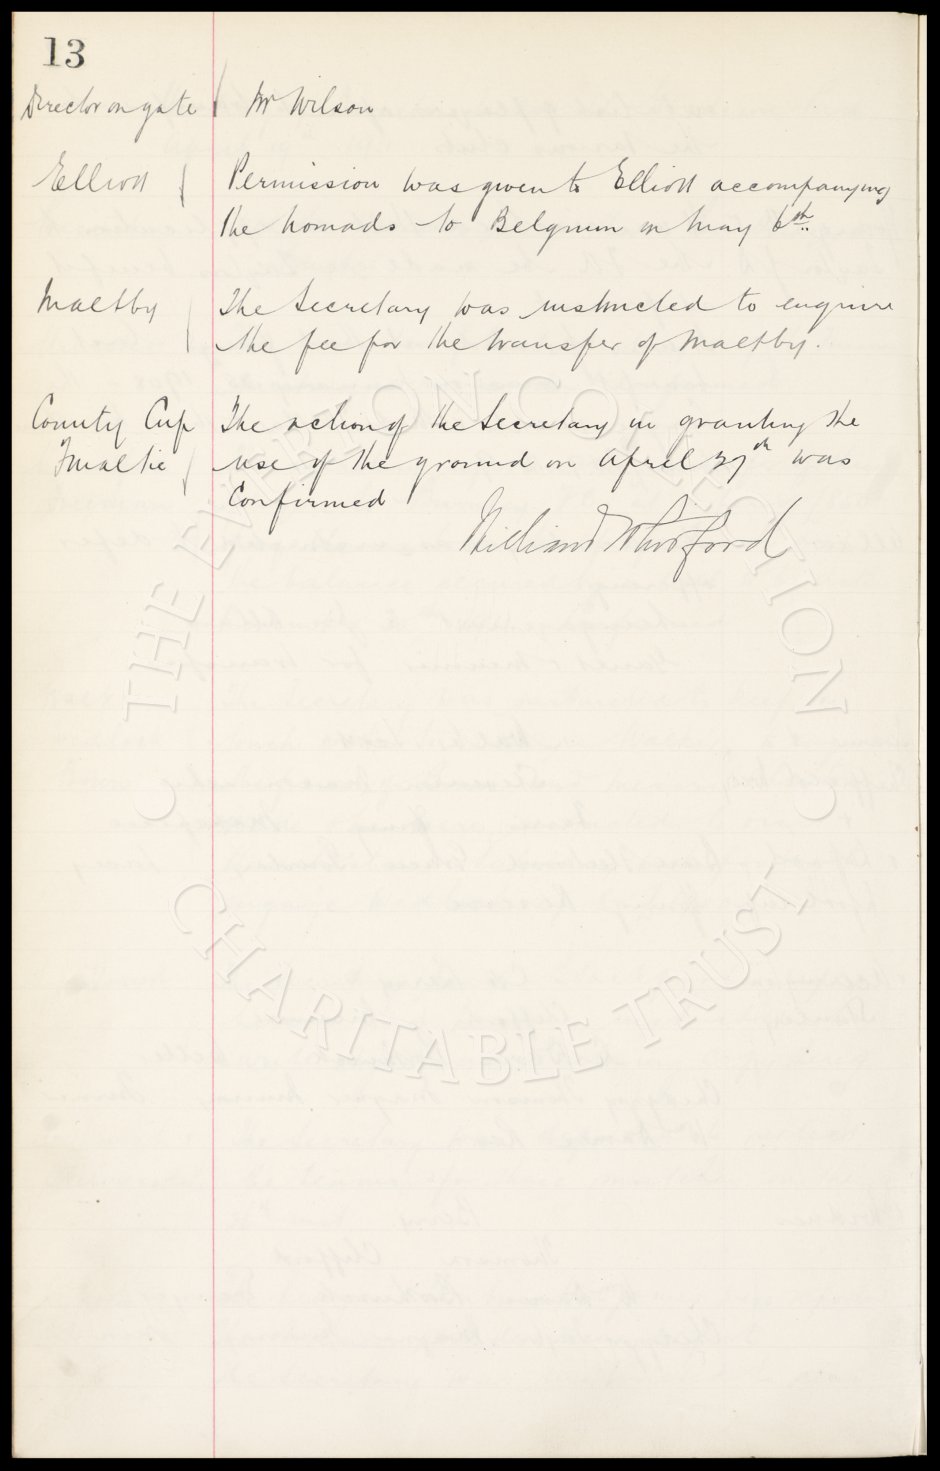 13
Director on gate Mr Wilson
Elliott Permission was given to Elliott accompanying
the nomads to Belgium on May 6th.
Maltby The Secretary was instructed to enquire
the fee for the transfer of Maltby.
County Cup The action of the Secretary in granting the
Finaltie use of the ground on April 27th was
Confirmed
William Whitford
THE EVERTON COLLECTION
CHARITABLE TRUST